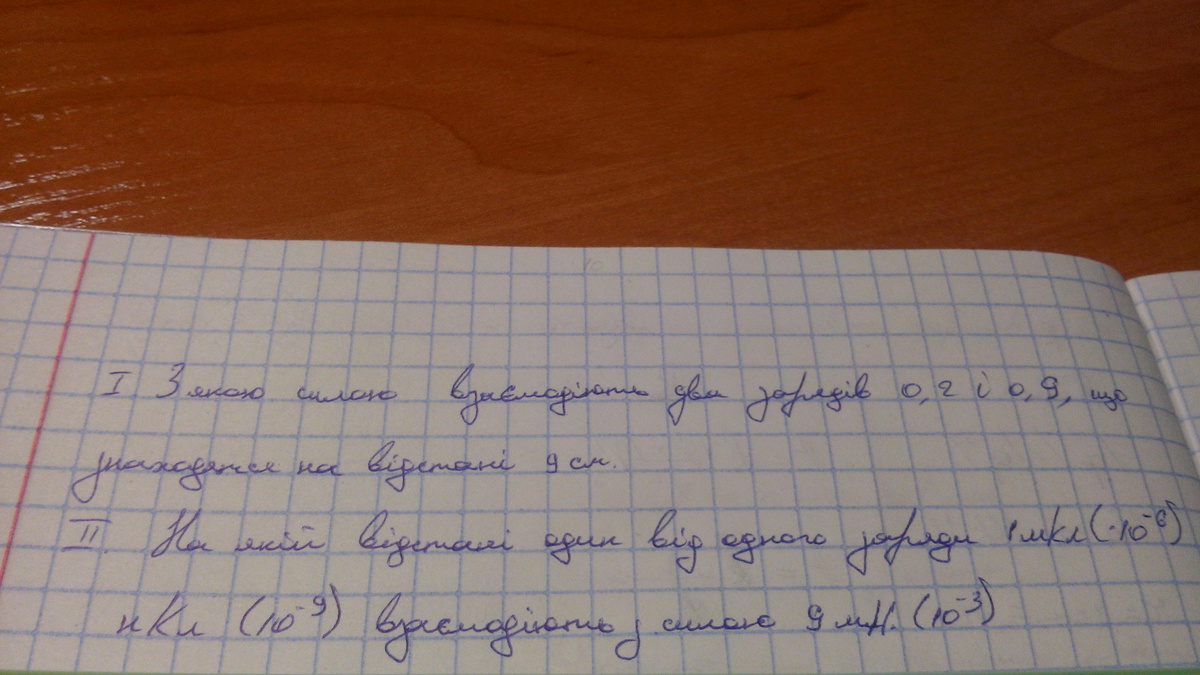 I З якою силою взаємодіють два зарядів 0,2 і 0,9, що
знаходятся на відстані 9 см.
II. На якій відстані один від одного заряди 1 мкл (·10⁻⁶)
нКл (10⁻⁹) взаємодіють з силою 9 мН. (10⁻³)